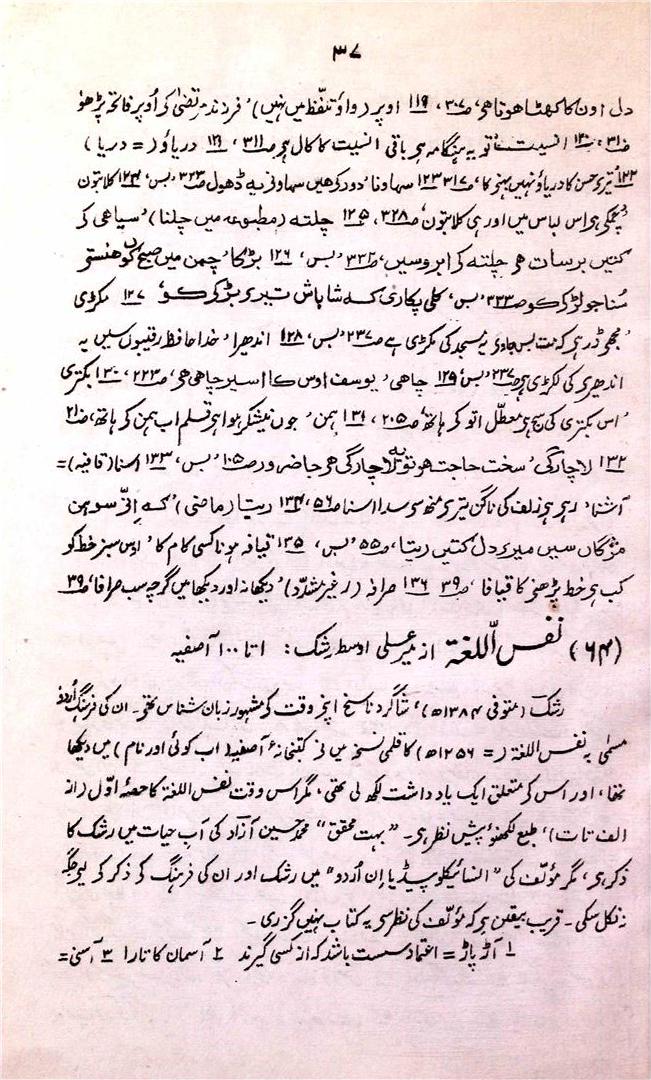 ۳۷
دل اون کا کھٹا ھوتا ھی، ص۳۰۷، ۱۱۹ اوپر (واؤ تلفّظ میں نہیں)' فرزند مرتضیٰ کر اُوپر فاتحہ پڑھو
ص۳۱، ۱۲۰ انسیت' تو یہ ہنگامہ ہر باقی انسیت کا کال ہر ص۳۱۱، ۱۲۱ دریاؤ (= دریا)
۱۲۲ تیری حسن کا دریاؤ نہیں پہنچ کا، ص۳۱۷ ۱۲۳ سہاونا' دور کرھیں سہاونے یہ ڈھول ص۳۲۳' بس، ۱۲۴ کلابتون
' چمکی ہر اس لباس میں اور ہی کلابتون' ص۳۲۸، ۱۲۵ چلتہ (مطبوعہ میں چلنا)' سیاھی کر
کتیں برسات ھر چلتہ کر ابرو سیں، ص۳۳۲' بس، ۱۲۶ بڑکا' چمن میں صبح کوں ھنستے
سُنا جو لڑکر کو ص۳۳۳' بس، کلی پکاری کہ شاباش تیری بڑکر کو' ۱۲۷ مکڑی
' مجھ ڈر ہر کہ مت بس جاوی یہ مسجد کی مکڑی ہے ص۲۳۷' بس، ۱۲۸ اندھرا' خدا حافظ رقیبوں سیں یہ
اندھری کی لکڑی ہر ص۲۳۷' بس' ۱۲۹ چاھی' یوسف اوس کا اسیر چاھی ھی، ص۲۲۳، ۱۳۰ بکتری
' اس بکتری کی سج ہر معطّل اتو کر ہاتھ' ص۲۰۵، ۱۳۱ ہمن' جوں نیشکر ہوا ہر قلم اب ہمن کر ہاتھ، ص۲۱
۱۳۲ لاچارگی' سخت حاجت ھو تو یہ لاچارگی ھر حاضر ور ص۱۰۵' بس، ۱۳۳ اسنا (قافیہ) =
آشنا' رہر ہر زلف کی ناگن تیری مُنھ سوں سدا اسنا ص۵۶، ۱۳۴ ریتا (ماضی)' کہ اِن سوہن
مژگاں سیں میری دل کتیں ریتا، ص۵۵' بس، ۱۳۵ قیافہ ہونا کسی کام کا' اوس سبز خط کو
کب ہر خط پڑھنے کا قیافا، ص۳۹ ۱۳۶ صرافہ (ر غیر مشدّد)' دیکھا نہ اور دیکھا میں گرچہ سب صرافا، ص۳۹
(۶۴) نفس اللّغۃ از میر علی اوسط رشک : ۱ تا ۱۰۰ آصفیہ
رشک (متوفی ۱۳۸۴ھ)، شاگرد ناسخ اپنے وقت کے مشہور زبان شناس تھے۔ ان کی فرہنگ اُردو
مسمّٰی بہ نفس اللغۃ (= ۱۲۵۶ھ) کا قلمی نسخہ میں نے کتبخانۂ آصفیہ (اب کوئی اور نام) میں دیکھا
تھا، اور اس کے متعلق ایک یادداشت لکھ لی تھی، مگر اس وقت نفس اللغۃ کا حصۂ اوّل (از
الف تا ت)، طبع لکھنؤ پیش نظر ہی۔ "بہت محقق" محمد حسین آزاد کی آب حیات میں رشک کا
ذکر ہی، مگر مؤلف کی "انسائیکلوپیڈیا اِن اُردو" میں رشک اور ان کی فرہنگ کے ذکر کے لیے جگہ
نہ نکل سکی۔ قریب بیقین ہے کہ مؤلف کی نظر سے یہ کتاب نہیں گزری۔
۱ آڑ پاڑ = اعتماد سست باشد کہ از کسی گیرند ۲ آسمان کا تارا ۳ آسنی =